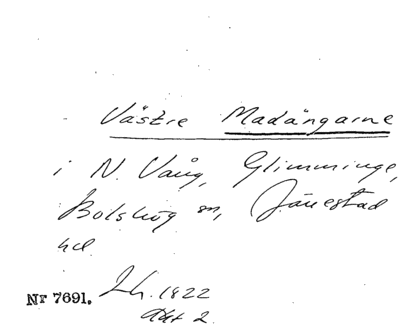 Västre Madängarne
i N. Vång, Glimminge,
Bolshög sn, Järrestad
hd
Nr 7691. Lh. 1822
Akt 2